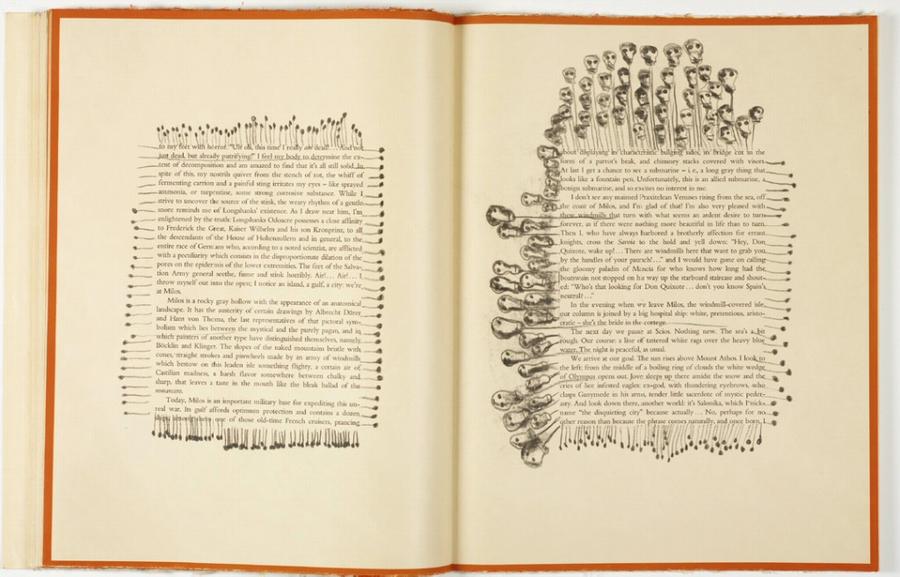 to my feet with horror. "Uh oh, this time I really am dead. . . . And not
just dead, but already putrifying!" I feel my body to determine the ex-
tent of decomposition and am amazed to find that it's all still solid. In
spite of this, my nostrils quiver from the stench of rot, the whiff of
fermenting carrion and a painful sting irritates my eyes – like sprayed
ammonia, or turpentine, some strong corrosive substance. While I
strive to uncover the source of the stink, the weary rhythm of a gentle
snore reminds me of Longshanks' existence. As I draw near him, I'm
enlightened by the truth: Longshanks Odorore possesses a close affinity
to Frederick the Great, Kaiser Wilhelm and his son Kronprinz, to all
the descendants of the House of Hohenzollern and in general, to the
entire race of Germans who, according to a noted scientist, are afflicted
with a peculiarity which consists in the disproportionate dilation of the
pores on the epidermis of the lower extremities. The feet of the Salva-
tion Army general seethe, fume and stink horribly. Air! . . . Air! . . . I
throw myself out into the open; I notice an island, a gulf, a city: we're
at Milos.
Milos is a rocky gray hollow with the appearance of an anatomical
landscape. It has the austerity of certain drawings by Albrecht Dürer
and Hans von Thema, the last representatives of that pictorial sym-
bolism which lies between the mystical and the purely pagan, and in
which painters of another type have distinguished themselves, namely,
Böcklin and Klinger. The slopes of the naked mountains bristle with
cones, straight smokes and pinwheels made by an army of windmills
which bestow on this leaden isle something flighty, a certain air of
Castilian madness, a harsh flavor somewhere between chalky and
sharp, that leaves a taste in the mouth like the bleak ballad of the
Today, Milos is an important military base for expediting this un-
real war. Its gulf affords optimum protection and contains a dozen
ships: one of those old-time French cruisers, prancing
about displaying its characteristic bulging sides, its bridge cut in the
form of a parrot's beak, and chimney stacks covered with visors.
At last I get a chance to see a submarine – i.e, a long gray thing that
looks like a fountain pen. Unfortunately, this is an allied submarine, a
benign submarine, and so excites no interest in me.
I don't see any maimed Praxitelean Venuses rising from the sea, off
the coast of Milos, and I'm glad of that! I'm also very pleased with
these windmills that turn with what seems an ardent desire to turn
forever, as if there were nothing more beautiful in life than to turn.
Then I, who have always harbored a brotherly affection for errant
knights, cross the Savoie to the hold and yell down: "Hey, Don
Quixote, wake up! . . . There are windmills here that want to grab you
by the handles of your paunch! . . ." and I would have gone on calling
the gloomy paladin of Mancia for who knows how long had the
boatswain not stopped on his way up the starboard staircase and shout-
ed: "Who's that looking for Don Quixote . . . don't you know Spain's
neutral! . . ."
In the evening when we leave Milos, the windmill-covered isle,
our column is joined by a big hospital ship: white, pretentious, aristo-
cratic – she's the bride in the cortege.
The next day we pause at Scios. Nothing new. The sea's a bit
rough. Our course: a line of tattered white rags over the heavy blue
water. The night is peaceful, as usual.
We arrive at our goal. The sun rises above Mount Athos. I look to
the left: from the middle of a boiling ring of clouds the white wedge
of Olympus opens out. Jove sleeps up there amidst the snow and the
cries of her infested eagles: ex-god, with thundering eyebrows, who
clasps Ganymede in his arms, tender little sacerdote of mystic peder-
asty. And look down there, another world: it's Salonika, which
name "the disquieting city" because actually . . . No, perhaps for no
other reason than because the phrase comes naturally, and once born, I